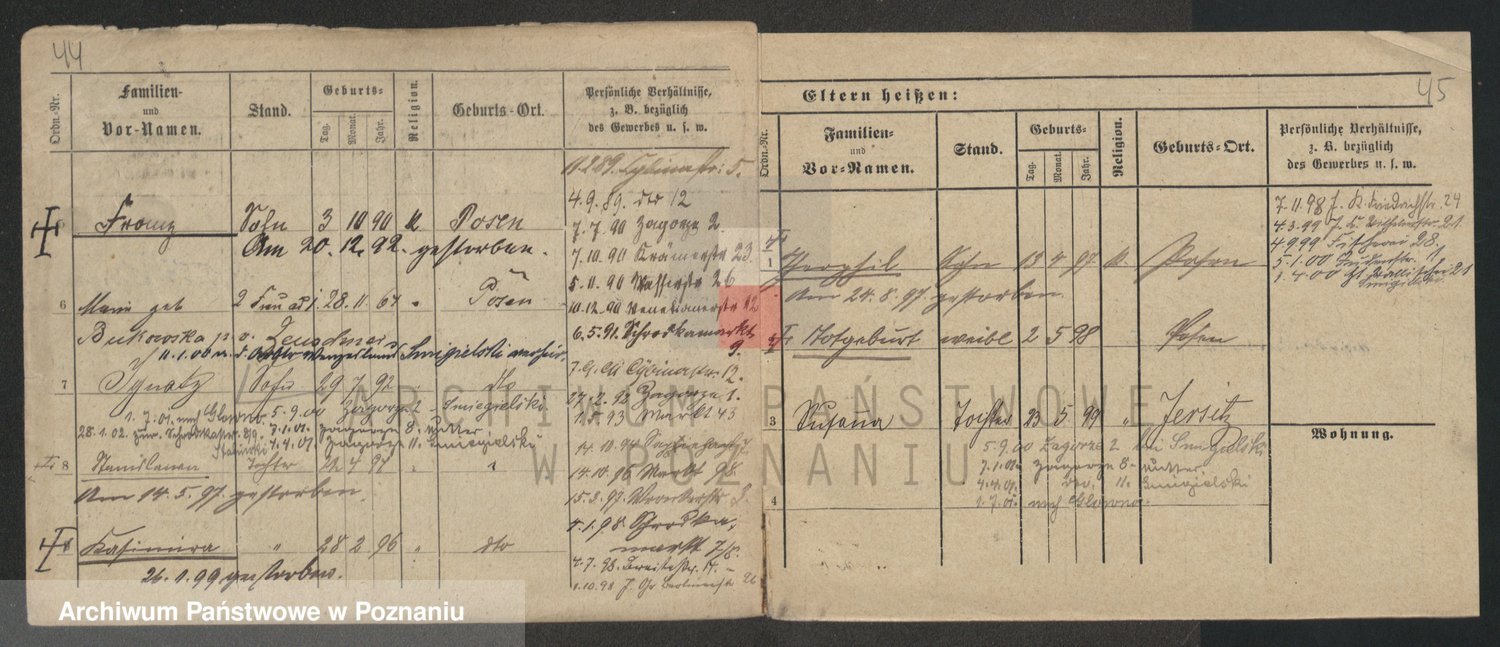 44
Ordn.-Nr.
Familien-
und
Vor-Namen.
Stand.
Geburts-
Tag.
Monat.
Jahr.
Religion.
Geburts-Ort.
Persönliche Verhältnisse,
z. B. bezüglich
des Gewerbes u. s. w.
11.2.89. Cybinastr: 5.
4.9.89. dto 12
Franz Sohn 3 10 90 k. Posen
7.7.90 Zagorze 2.
Am 20.12.92. gestorben.
7.10.90 Krämerstr 23.
5.11.90 26
6 Marie geb 2 Frau 28.11 67 " Posen
10.12.90 Venetianerstr 12
Bukowska
6.5.91. Schrodkamarkt
9.
11.1.06 Smigielski
7 Ignatz Sohn 29 7 92 dto
Cybinastr. 12.
27.2.92 Zagorze 1.
1.7.01. nach Glowno 5.9.00 Zagorze 2 Smiegielski
93 Markt 43
28.1.02. 7.1.01. Zagorze 8. Mutter
4.4.01 Zagorze 11. Smigielski
14.10.94
8 Stanislawa Tochter 22 4 97 " "
14.10.96 Markt 98.
Am 14.5.97. gestorben.
15.3.97. 3.
4.1.98. Schrodka,
markt 7/8.
Kasimira " 28 2 96 " dto
4.7.98. Breitestr. 14. -
26.1.99 gestorben.
1.10.98 Berlinerstr
45
Eltern heißen:
Ordn.-Nr.
Familien-
und
Vor-Namen.
Stand.
Geburts-
Tag.
Monat.
Jahr.
Religion.
Geburts-Ort.
Persönliche Verhältnisse,
z. B. bezüglich
des Gewerbes u. s. w.
7.11.98 24
4.3.99 21
4.9.99 28.
1 Theophil Sohn 13 4 97. k. Posen
5.1.00
1.4.00 21
Am 24.8.97 gestorben.
2 Totgeburt weibl 2 5 98 Posen
3 Susanna Tochter 23 5 99 " Jersitz
Wohnung.
5.9.00 Zagorze 2 bei Smigielski
7.1.01. Zagorze 8- Mutter
4.4.01. dto. 11. Smigielski
4
1.7.01. nach Glowno.
ARCHIWUM PAŃSTWOWE
W POZNANIU
Archiwum Państwowe w Poznaniu